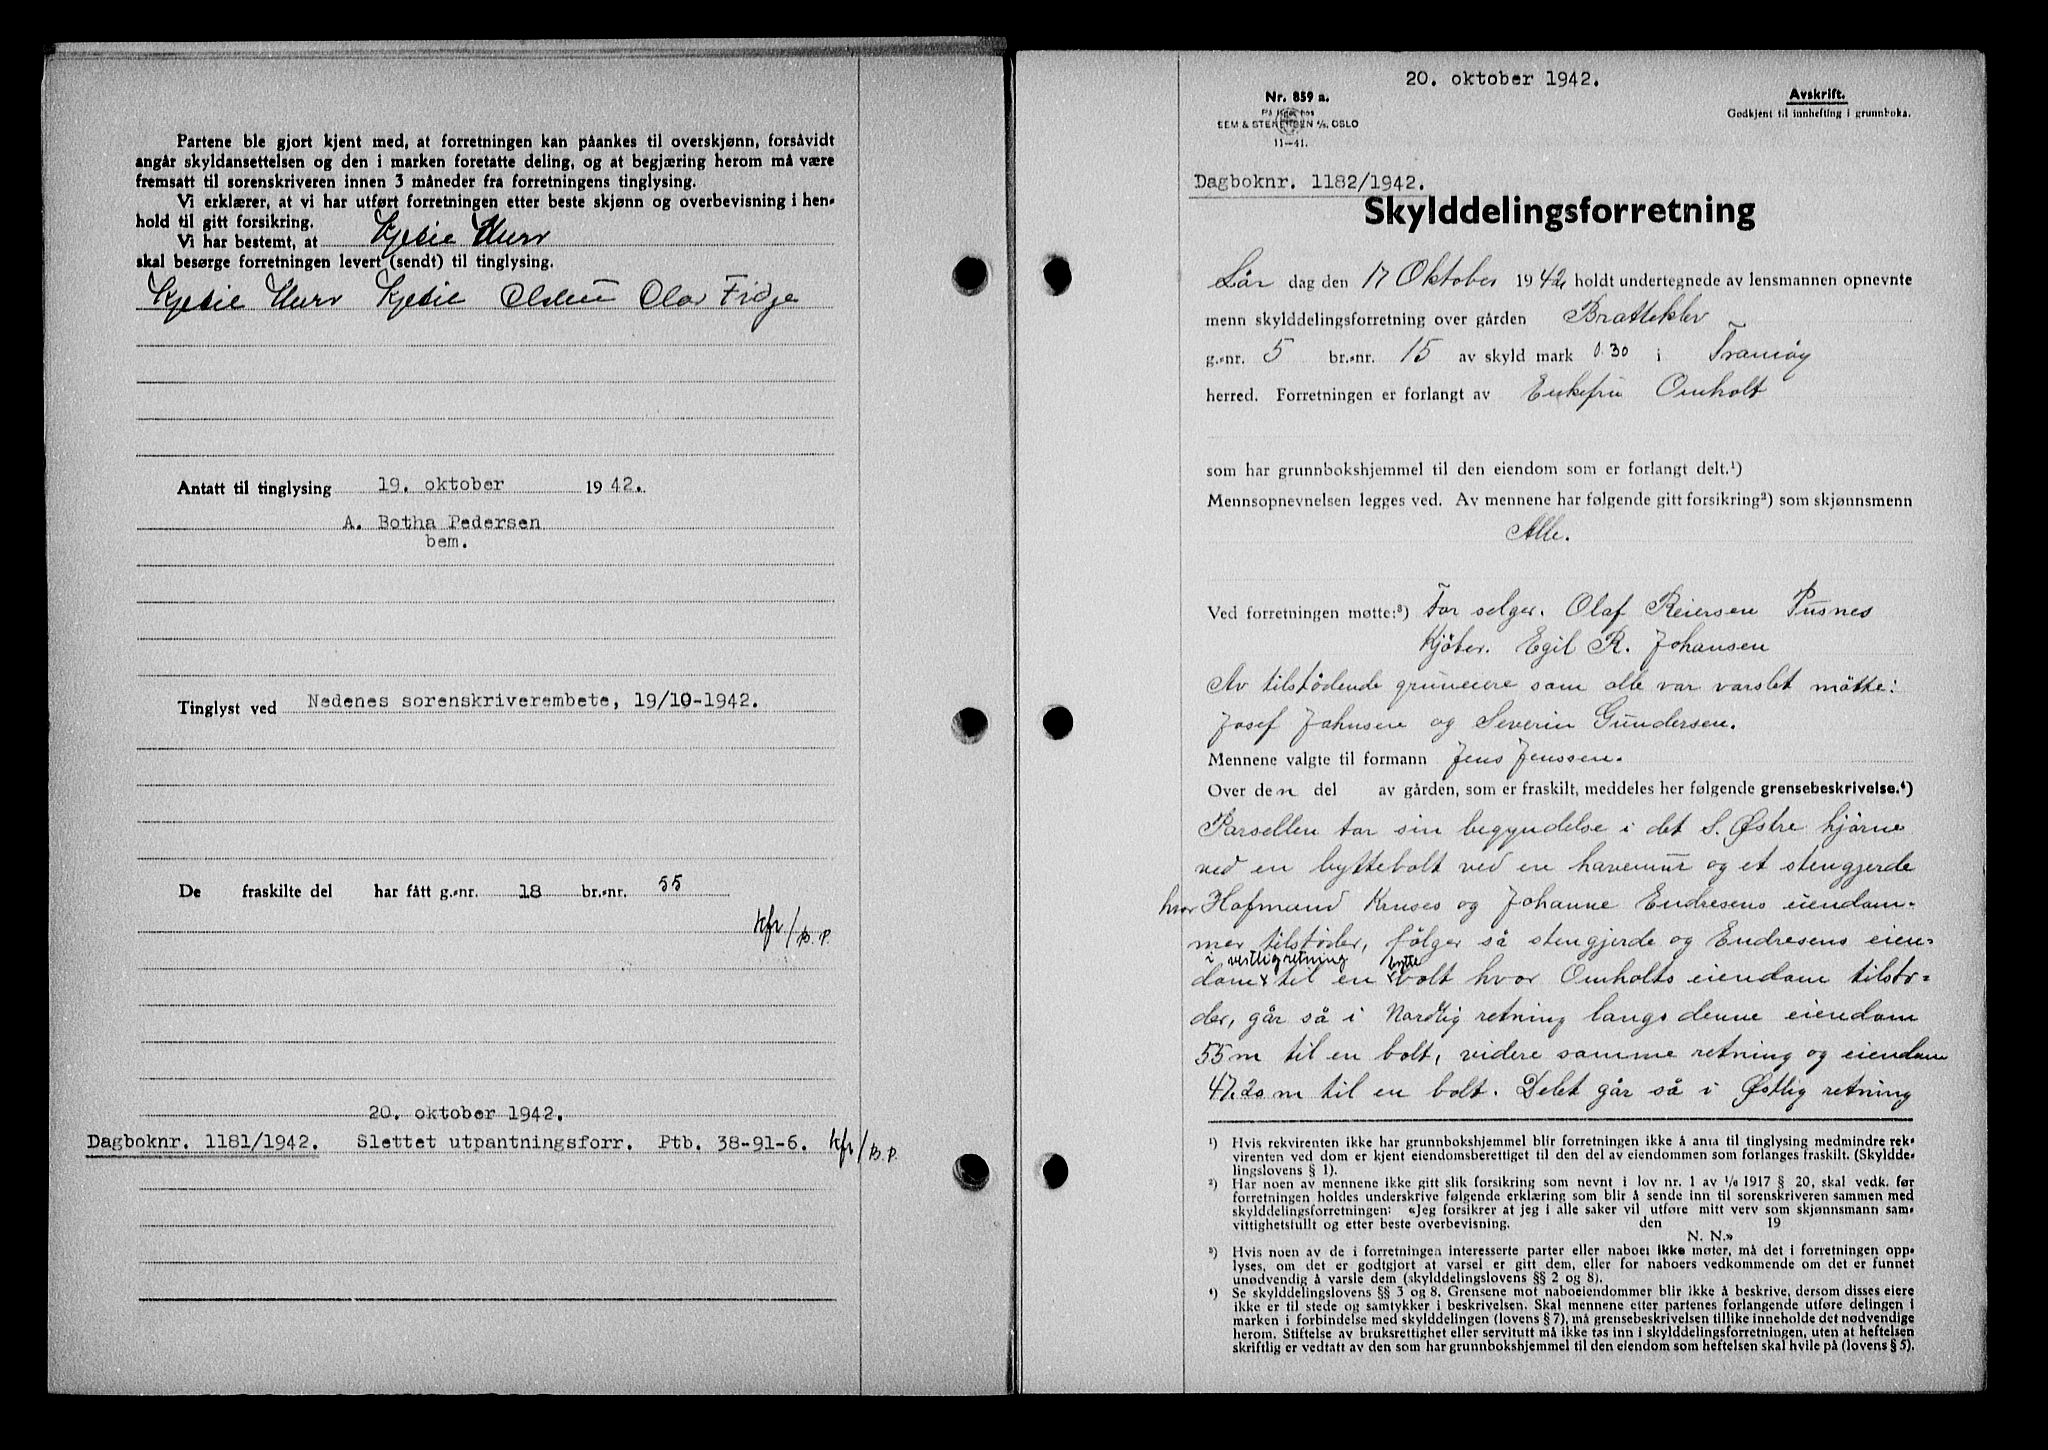 Partene ble gjort kjent med, at forretningen kan påankes til overskjønn, forsåvidt
angår skyldansettelsen og den i marken foretatte deling, og at begjæring herom må være
fremsatt til sorenskriveren innen 3 måneder fra forretningens tinglysing.
Vi erklærer, at vi har utført forretningen etter beste skjønn og overbevisning i hen-
hold til gitt forsikring.
Vi har bestemt, at
skal besørge forretningen levert (sendt) til tinglysing.
Olav Fidje
Antatt til tinglysing 19. oktober 1942.
A. Botha Pedersen
bem.
Tinglyst ved Nedenes sorenskriverembete, 19/10-1942.
De fraskilte del har fått g.-nr. 18 br.-nr. 55
kfr/B.P.
20. oktober 1942.
Dagboknr. 1181/1942. Slettet utpantningsforr. Ptb. 38-91-6. kfr/B.P.
20. oktober 1942.
Nr. 859 a.
Avskrift.
Godkjent til innhefting i grunnboka.
SEM & STENERSEN A/S, OSLO
11-41.
Dagboknr. 1182/1942.
Skylddelingsforretning
Lør dag den 17 Oktober 1942 holdt undertegnede av lensmannen opnevnte
menn skylddelingsforretning over gården Bratteklev
g.-nr. 5 br.-nr. 15 av skyld mark 0.30 i Tromøy
herred. Forretningen er forlangt av Enkefru Omholt
som har grunnbokshjemmel til den eiendom som er forlangt delt.¹)
Mennsopnevnelsen legges ved. Av mennene har følgende gitt forsikring²) som skjønnsmenn
Alle.
Ved forretningen møtte:³) For selger. Olaf Reiersen Pusnes
Kjöber. Egil R. Johansen
Av tilstödende gruneiere som alle var varslet mötte:
Josef Johnsen og Severin Gundersen.
Mennene valgte til formann Jens Jenssen.
Over den del av gården, som er fraskilt, meddeles her følgende grensebeskrivelse.⁴)
Parsellen tar sin begyndelse i det S. Østre hjörne
ved en byttebolt ved en havemur og et stengjerde
hvor Hofmand Kruses og Johanne Endresens eiendom-
mer tilstøder, fölger så stengjerde og Endresens eien-
i vestlig retning bytte
dom x til en x bolt hvor Omholts eiendom tilstö-
der, går så i Nordlig retning langs denne eiendom
55 m til en bolt, videre samme retning og eiendom
47,20 m til en bolt. Delet går så i Østlig retning
¹) Hvis rekvirenten ikke har grunnbokshjemmel blir forretningen ikke å anta til tinglysing medmindre rek-
virenten ved dom er kjent eiendomsberettiget til den del av eiendommen som forlanges fraskilt. (Skyldde-
lingslovens § 1).
²) Har noen av mennene ikke gitt slik forsikring som nevnt i lov nr. 1 av 1/6 1917 § 20, skal vedk. før
forretningen holdes underskrive følgende erklæring som blir å sende inn til sorenskriveren sammen med
skylddelingsforretningen: «Jeg forsikrer at jeg i alle saker vil utføre mitt verv som skjønnsmann sam-
vittighetsfullt og etter beste overbevisning. den 19
N. N.»
³) Hvis noen av de i forretningen interesserte parter eller naboer ikke møter, må det i forretningen opp-
lyses, om det er godtgjort at varsel er gitt dem, eller for naboers vedkommende om det er funnet
unødvendig å varsle dem (skylddelingslovens §§ 2 og 8).
⁴) Se skylddelingslovens §§ 3 og 8. Grensene mot naboeiendommer blir ikke å beskrive, dersom disses eiere
ikke er til stede og samtykker i beskrivelsen. Skal mennene etter partenes forlangende utføre delingen i
marken i forbindelse med skylddelingen (lovens § 7), må grensebeskrivelsen tillike inneholde det nødvendige
herom. Stiftelse av bruksrettighet eller servitutt må ikke tas inn i skylddelingsforretningen, uten at heftelsen
skriftlig er vedtatt av den som har grunnbokshjemmel til den eiendom som heftelsen skal hvile på (lovens § 5).